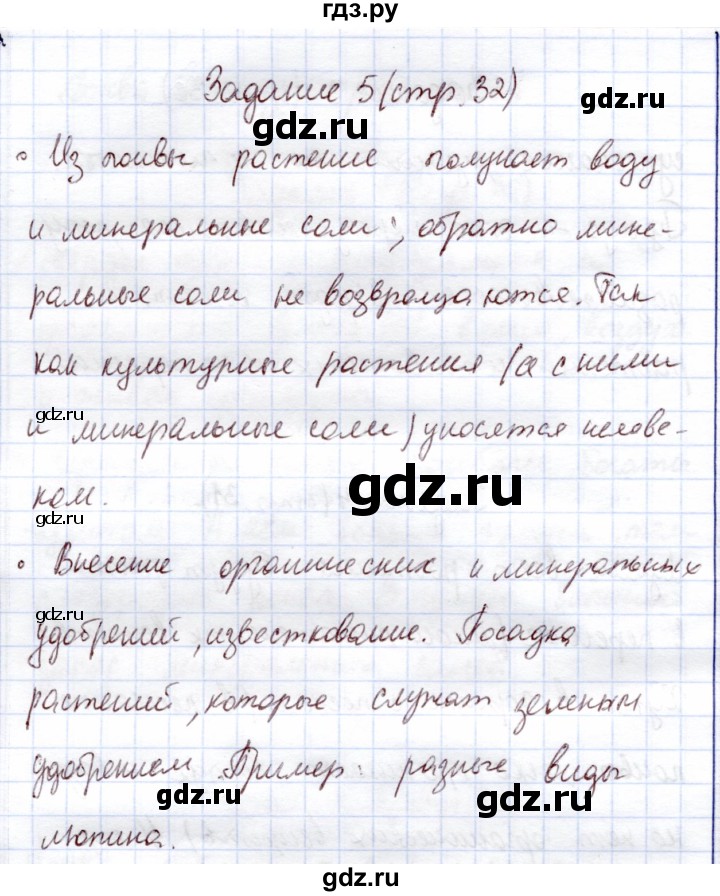 гдз.ру
Задание 5 (стр. 32)
gdz.ru
gdz.ru
• Из почвы растение получает воду
и минеральные соли, обратно мине-
ральные соли не возвращаются. Так
gdz.ru
как культурные растения (а с ними
gdz.ru
и минеральные соли) уносятся челове-
gdz.ru
ком.
gdz.ru
• Внесение органических и минеральных
gdz.ru
удобрений, известкование. Посадка
растений, которые служат зеленым
gdz.ru
удобрением. Пример: разные виды
gdz.ru
gdz.ru
люпина.